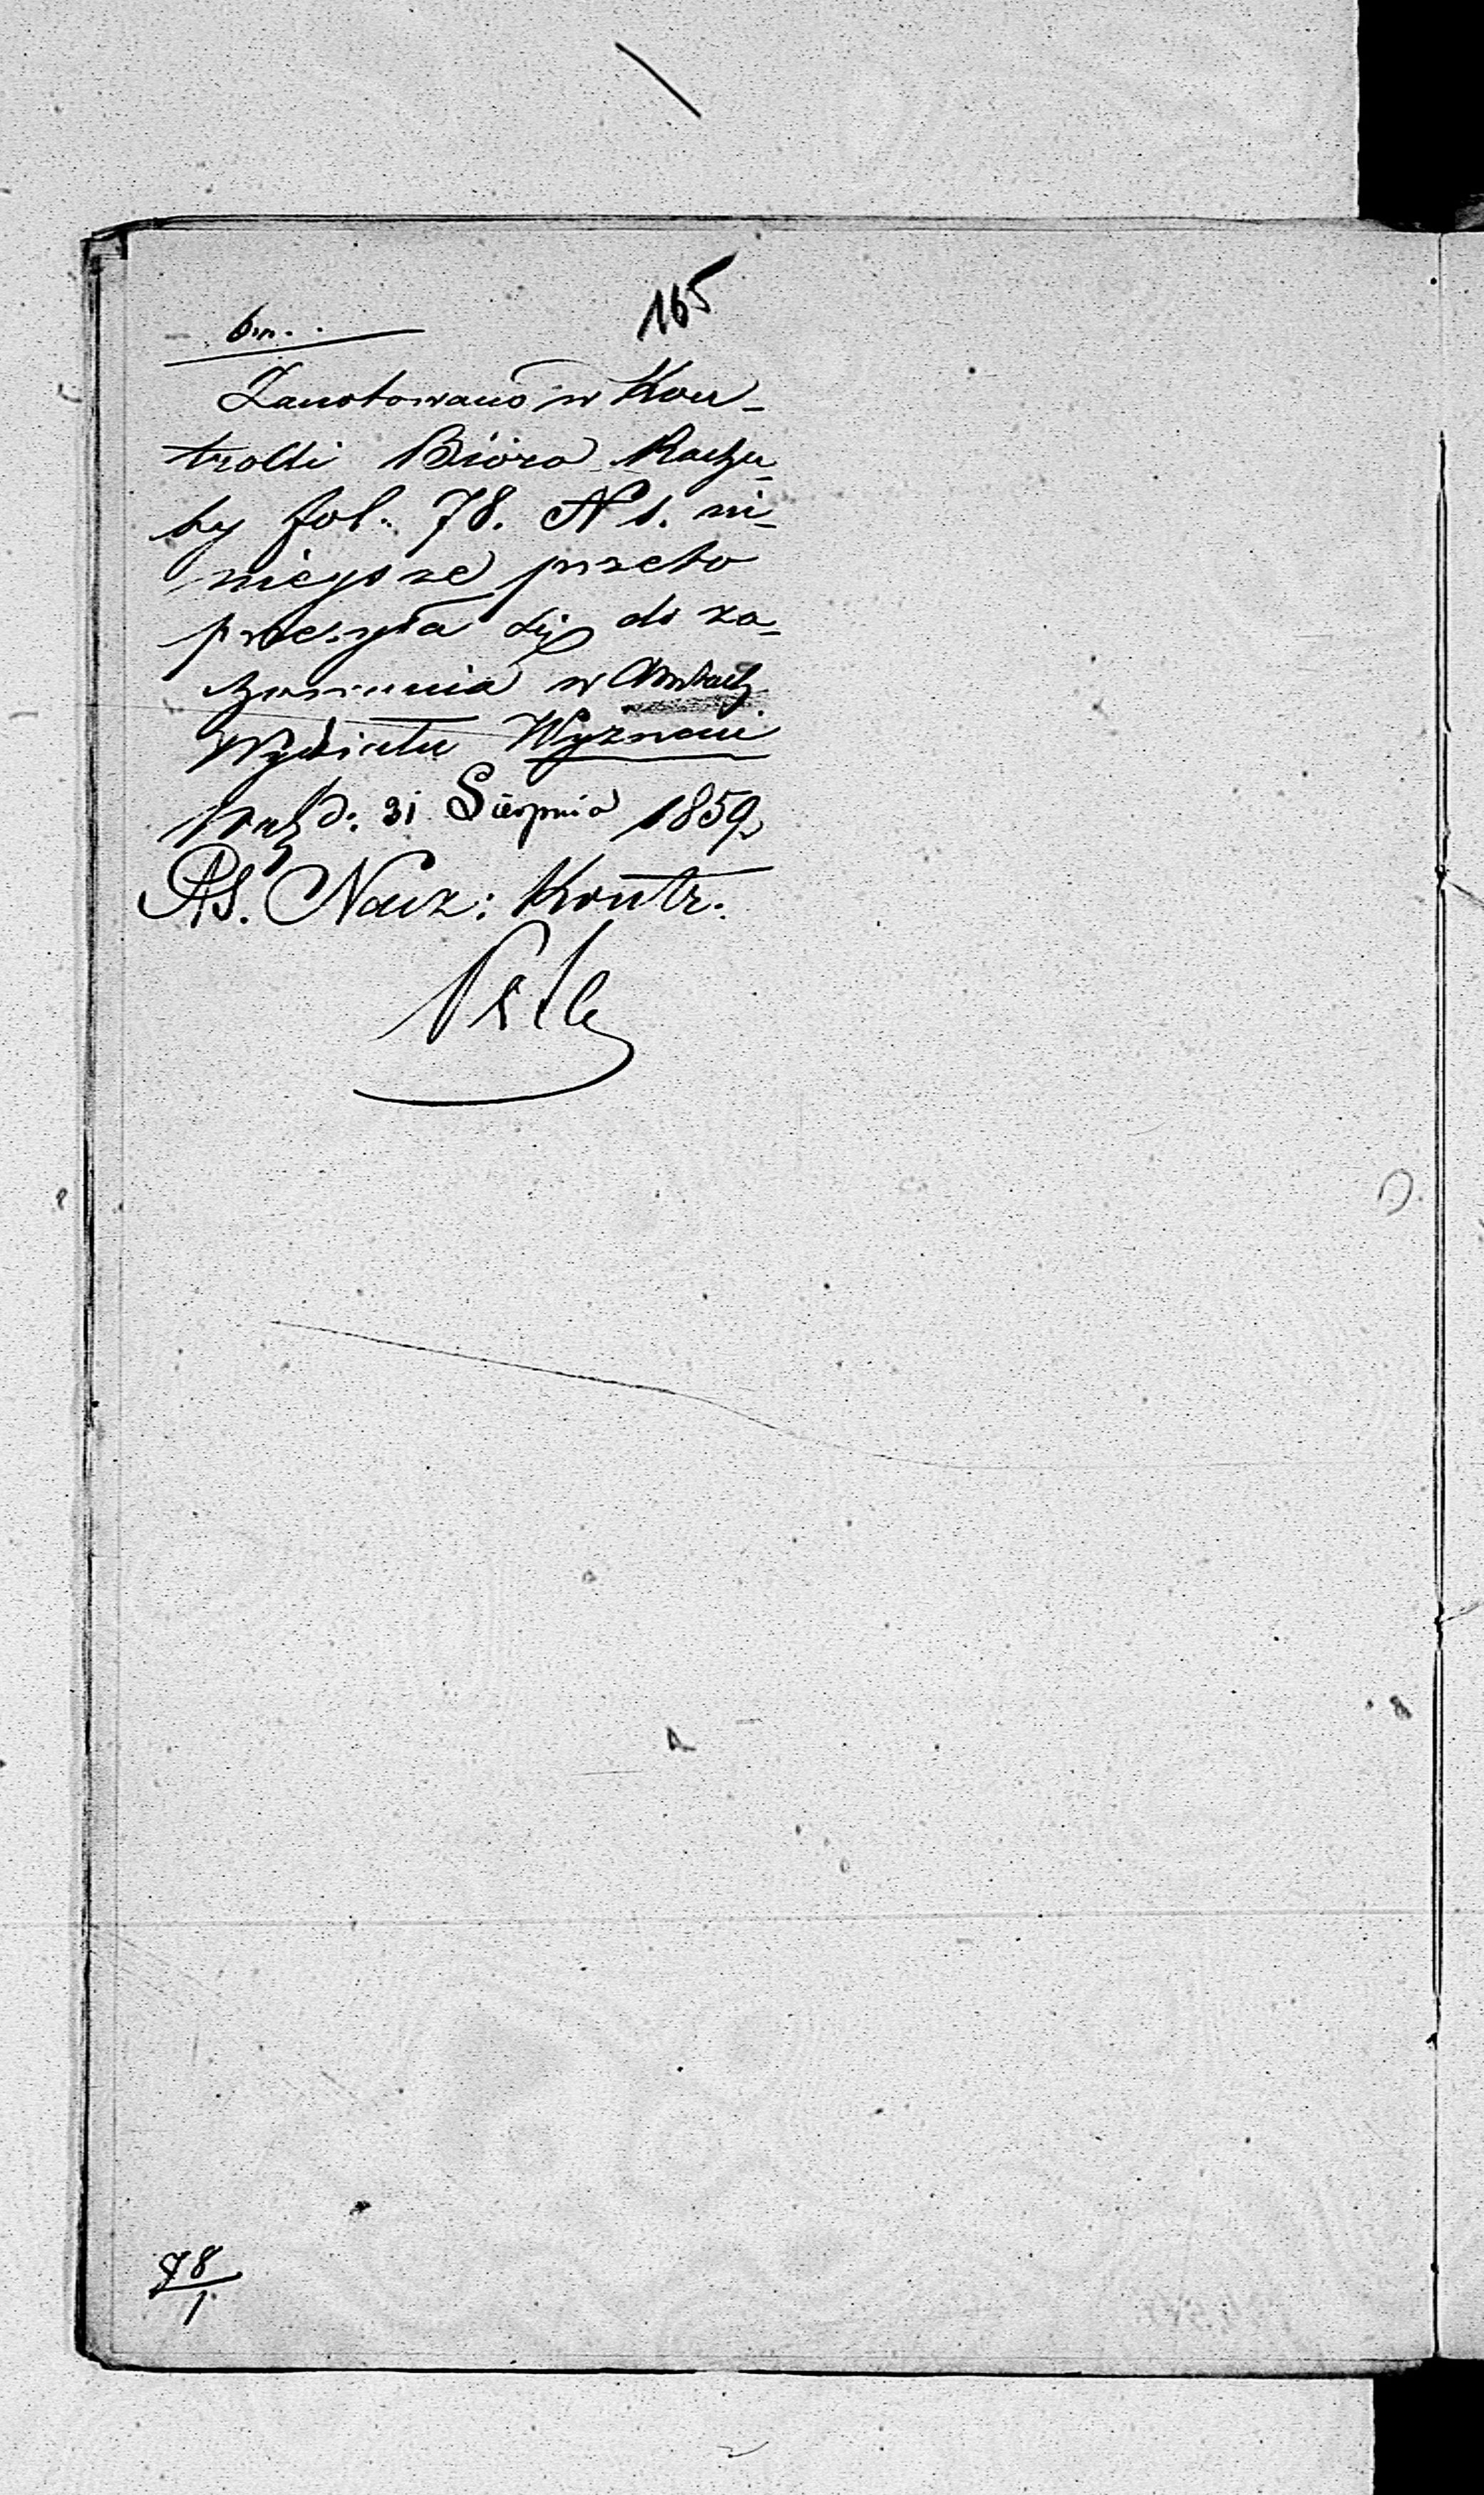 165
Zanotowano w Kon-
trolli Biora Rachu-
by fol. 78. N 1. ni-
niejsze przeto
przesyła się do za-
chowania w
Wydziału Wyznań
d: 31 Sierpnia 1859
As. Nacz: Kontr.
78
1